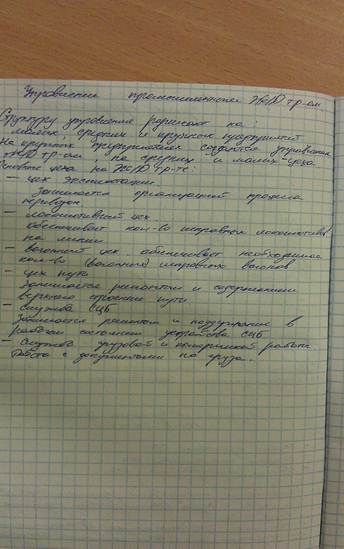 Управление промышленным ЖД тр-ом
Структуру управления разделяют на:
малых, средних и крупных предприятий
На крупных предприятиях создаются управления
ЖД тр-ом, на средних и малых цеха
цеха на ЖД тр-те:
– цех эксплуатации
Занимается организацией процесса
перевозок
– локомотивный цех
обеспечивает кол-во исправных локомотивов
на линии
– вагонный цех обеспечивает необходимое
кол-во (вагонов) исправных вагонов
– цех пути
Занимается ремонтом и содержанием
верхнего строения пути
– служба СЦБ
Занимается ремонтом и поддержание в
рабочем состоянии устройств СЦБ
– служба грузовой и коммерческой работы
Работа с документами по грузу.